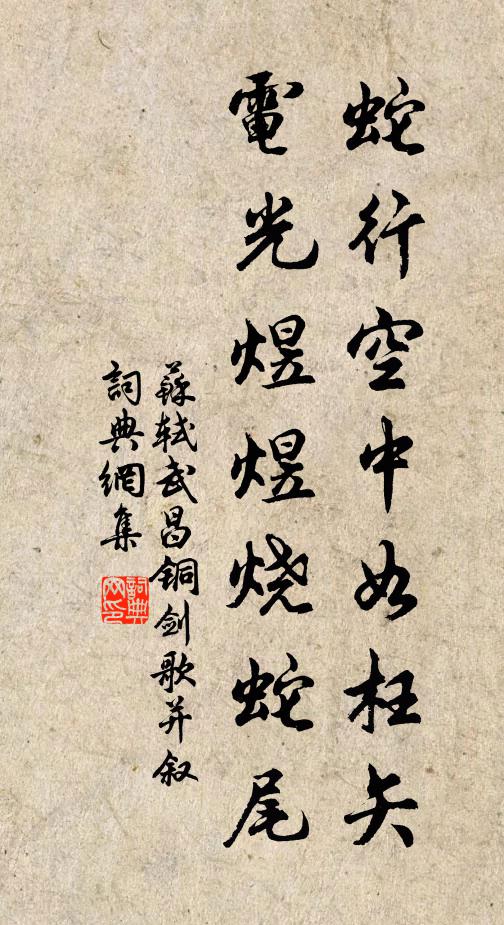 蛇行空中如枉矢
電光煜煜烧蛇尾
蘇轼武昌铜剑歌并叙
詞典網集
詞典
网印